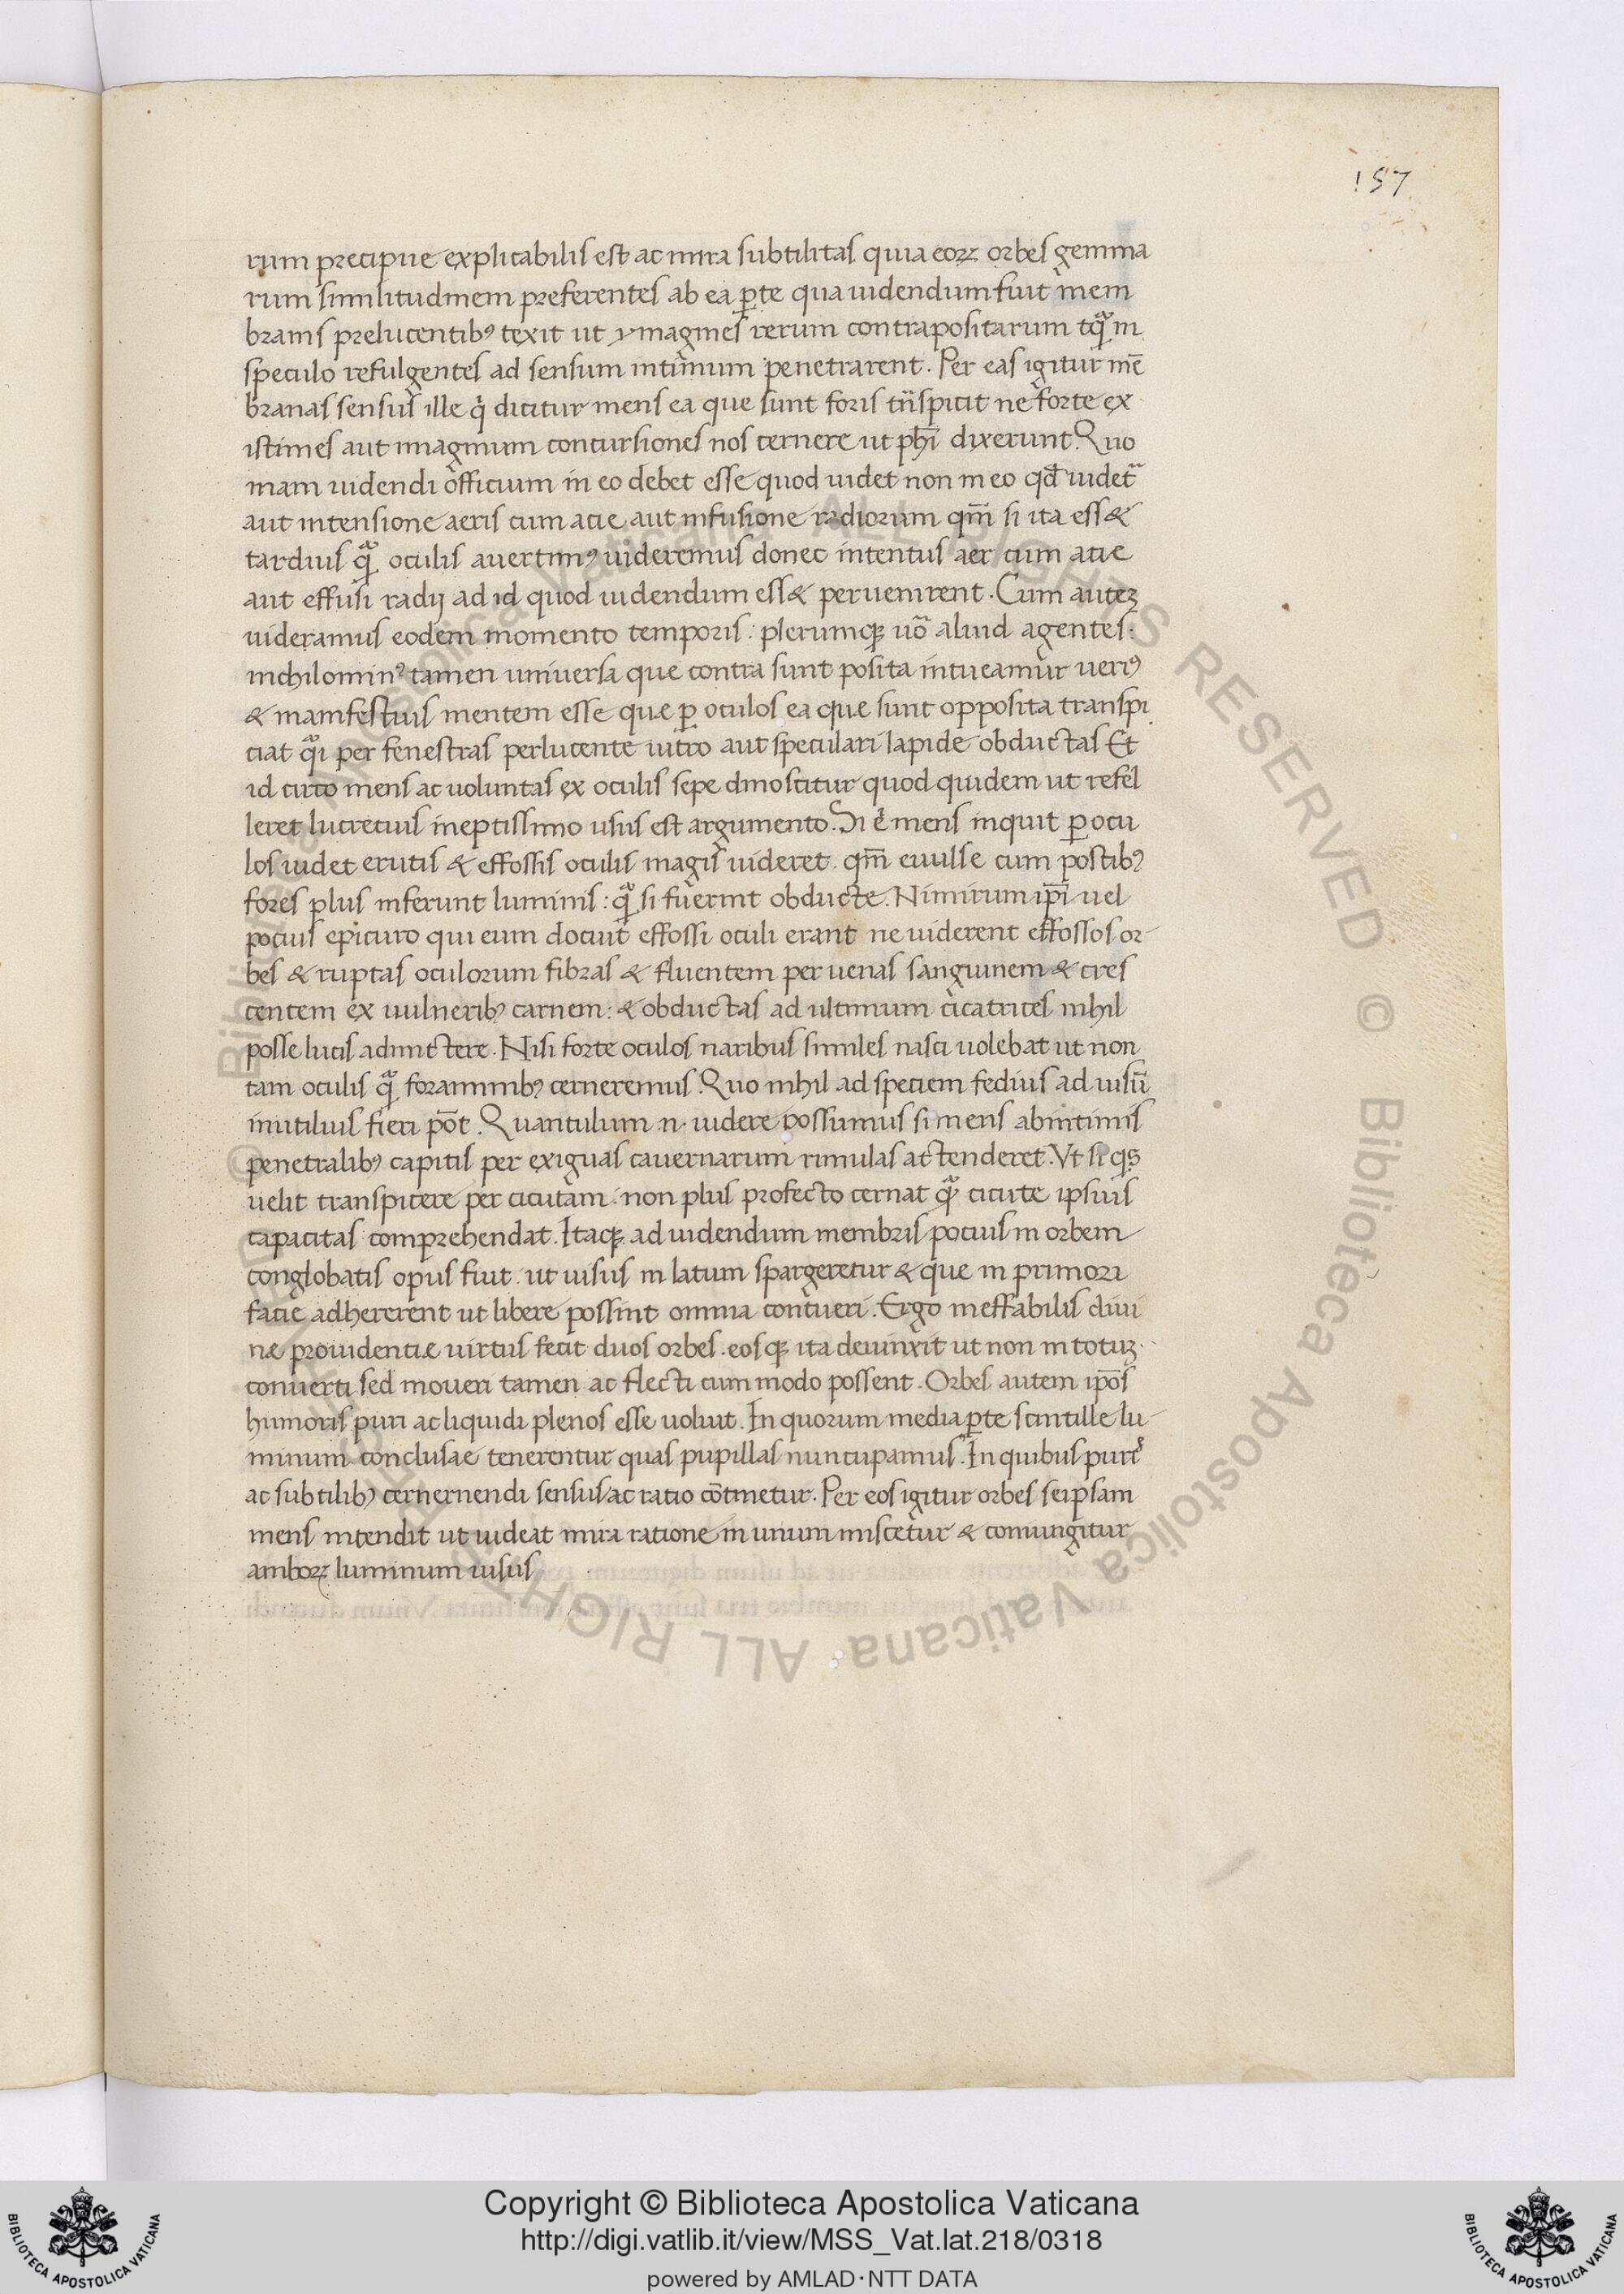 157
rum precipue explicabilis est ac mira subtilitas quia eoꝝ orbes gemma
rum similitudinem preferentes ab ea ꝑte qua uidendum fuit mem
branis prelucentibꝰ texit ut ymagines rerum contrapositarum tqͣ in
speculo refulgentes ad sensum intimum penetrarent. Per eas igitur mē
branas sensus ille qͥ dicitur mens ea que sunt foris tn̄spicit ne forte ex
istimes aut imaginum concursiones nos cernere ut phī dixerunt. Quo
niam uidendi officium in eo debet esse quod uidet non in eo qđ uidetᷣ
aut intensione aeris cum acie aut infusione radiorum qm̄ si ita ess&
tardius qͣ oculis auertimꝰ uideremus donec intentus aer cum acie
aut effusi radij ad id quod uidendum ess& peruenirent. Cum auteꝫ
uideramus eodem momento temporis: plerumqꝫ uo᷑ aliud agentes:
nichilominꝰ tamen uniuersa que contra sunt posita intueamur ueriꝰ
& manifestius mentem esse que ꝑ oculos ea que sunt opposita transpi
ciat qͣi per fenestras perlucente uitro aut speculari lapide obductas Et
id circo mens ac uoluntas ex oculis sepe dinoscitur quod quidem ut refel
leret lucretius ineptissimo usus est argumento. Si e̓ mens inquit ꝑ ocu
los uidet erutis & effossis oculis magis uideret. qm̄ euulse cum postibꝰ
fores plus inferunt luminis: qͣ si fuerint obducte. Nimirum ip̄i uel
pocius epicuro qui eum docuit effossi oculi erant ne uiderent effossos or-
bes & ruptas oculorum fibras & fluentem per uenas sanguinem & cres
centem ex uulneribꝰ carnem: & obductas ad ultimum cicatrices nihil
posse lucis admictere. Nisi forte oculos naribus similes nasci uolebat ut non
tam oculis qͣ foraminibꝰ cerneremus. Quo nihil ad speciem fedius ad uisū
inutilius fieri pōt. Quantulum .n. uidere possumus si mens ab intimis
penetralibꝰ capitis per exiguas cauernarum rimulas actenderet. Vt si qͥs
uelit transpicere per cicutam. non plus profecto cernat qͣ cicute ipsius
capacitas comprehendat. Itaqꝫ ad uidendum membris pocius in orbem
conglobatis opus fiut. ut uisus in latum spargeretur & que in primori
facie adhererent ut libere possint omnia contueri. Ergo ineffabilis diui
næ prouidentiæ uirtus fecit duos orbes. eosqꝫ ita deuinxit ut non in totuꝫ
conuerti sed moueri tamen ac flecti cum modo possent. Orbes autem ip̄os
humoris puri ac liquidi plenos esse uoluit. In quorum media ꝑte scintille lu-
minum conclusae tenerentur quas pupillas nuncupamus. In quibus puri̓
ac subtilibꝰ cernernendi sensus ac ratio cōtinetur. Per eos igitur orbes seipsam
mens intendit ut uideat mira ratione in unum miscetur & coniungitur
amboꝝ luminum uisus
Copyright © Biblioteca Apostolica Vaticana
http://digi.vatlib.it/view/MSS_Vat.lat.218/0318
powered by AMLAD·NTT DATA
BIBLIOTECA APOSTOLICA VATICANA
BIBLIOTECA APOSTOLICA VATICANA
© Biblioteca Apostolica Vaticana ALL RIGHTS RESERVED © Biblioteca Apostolica Vaticana ALL RIGHTS RESERVED